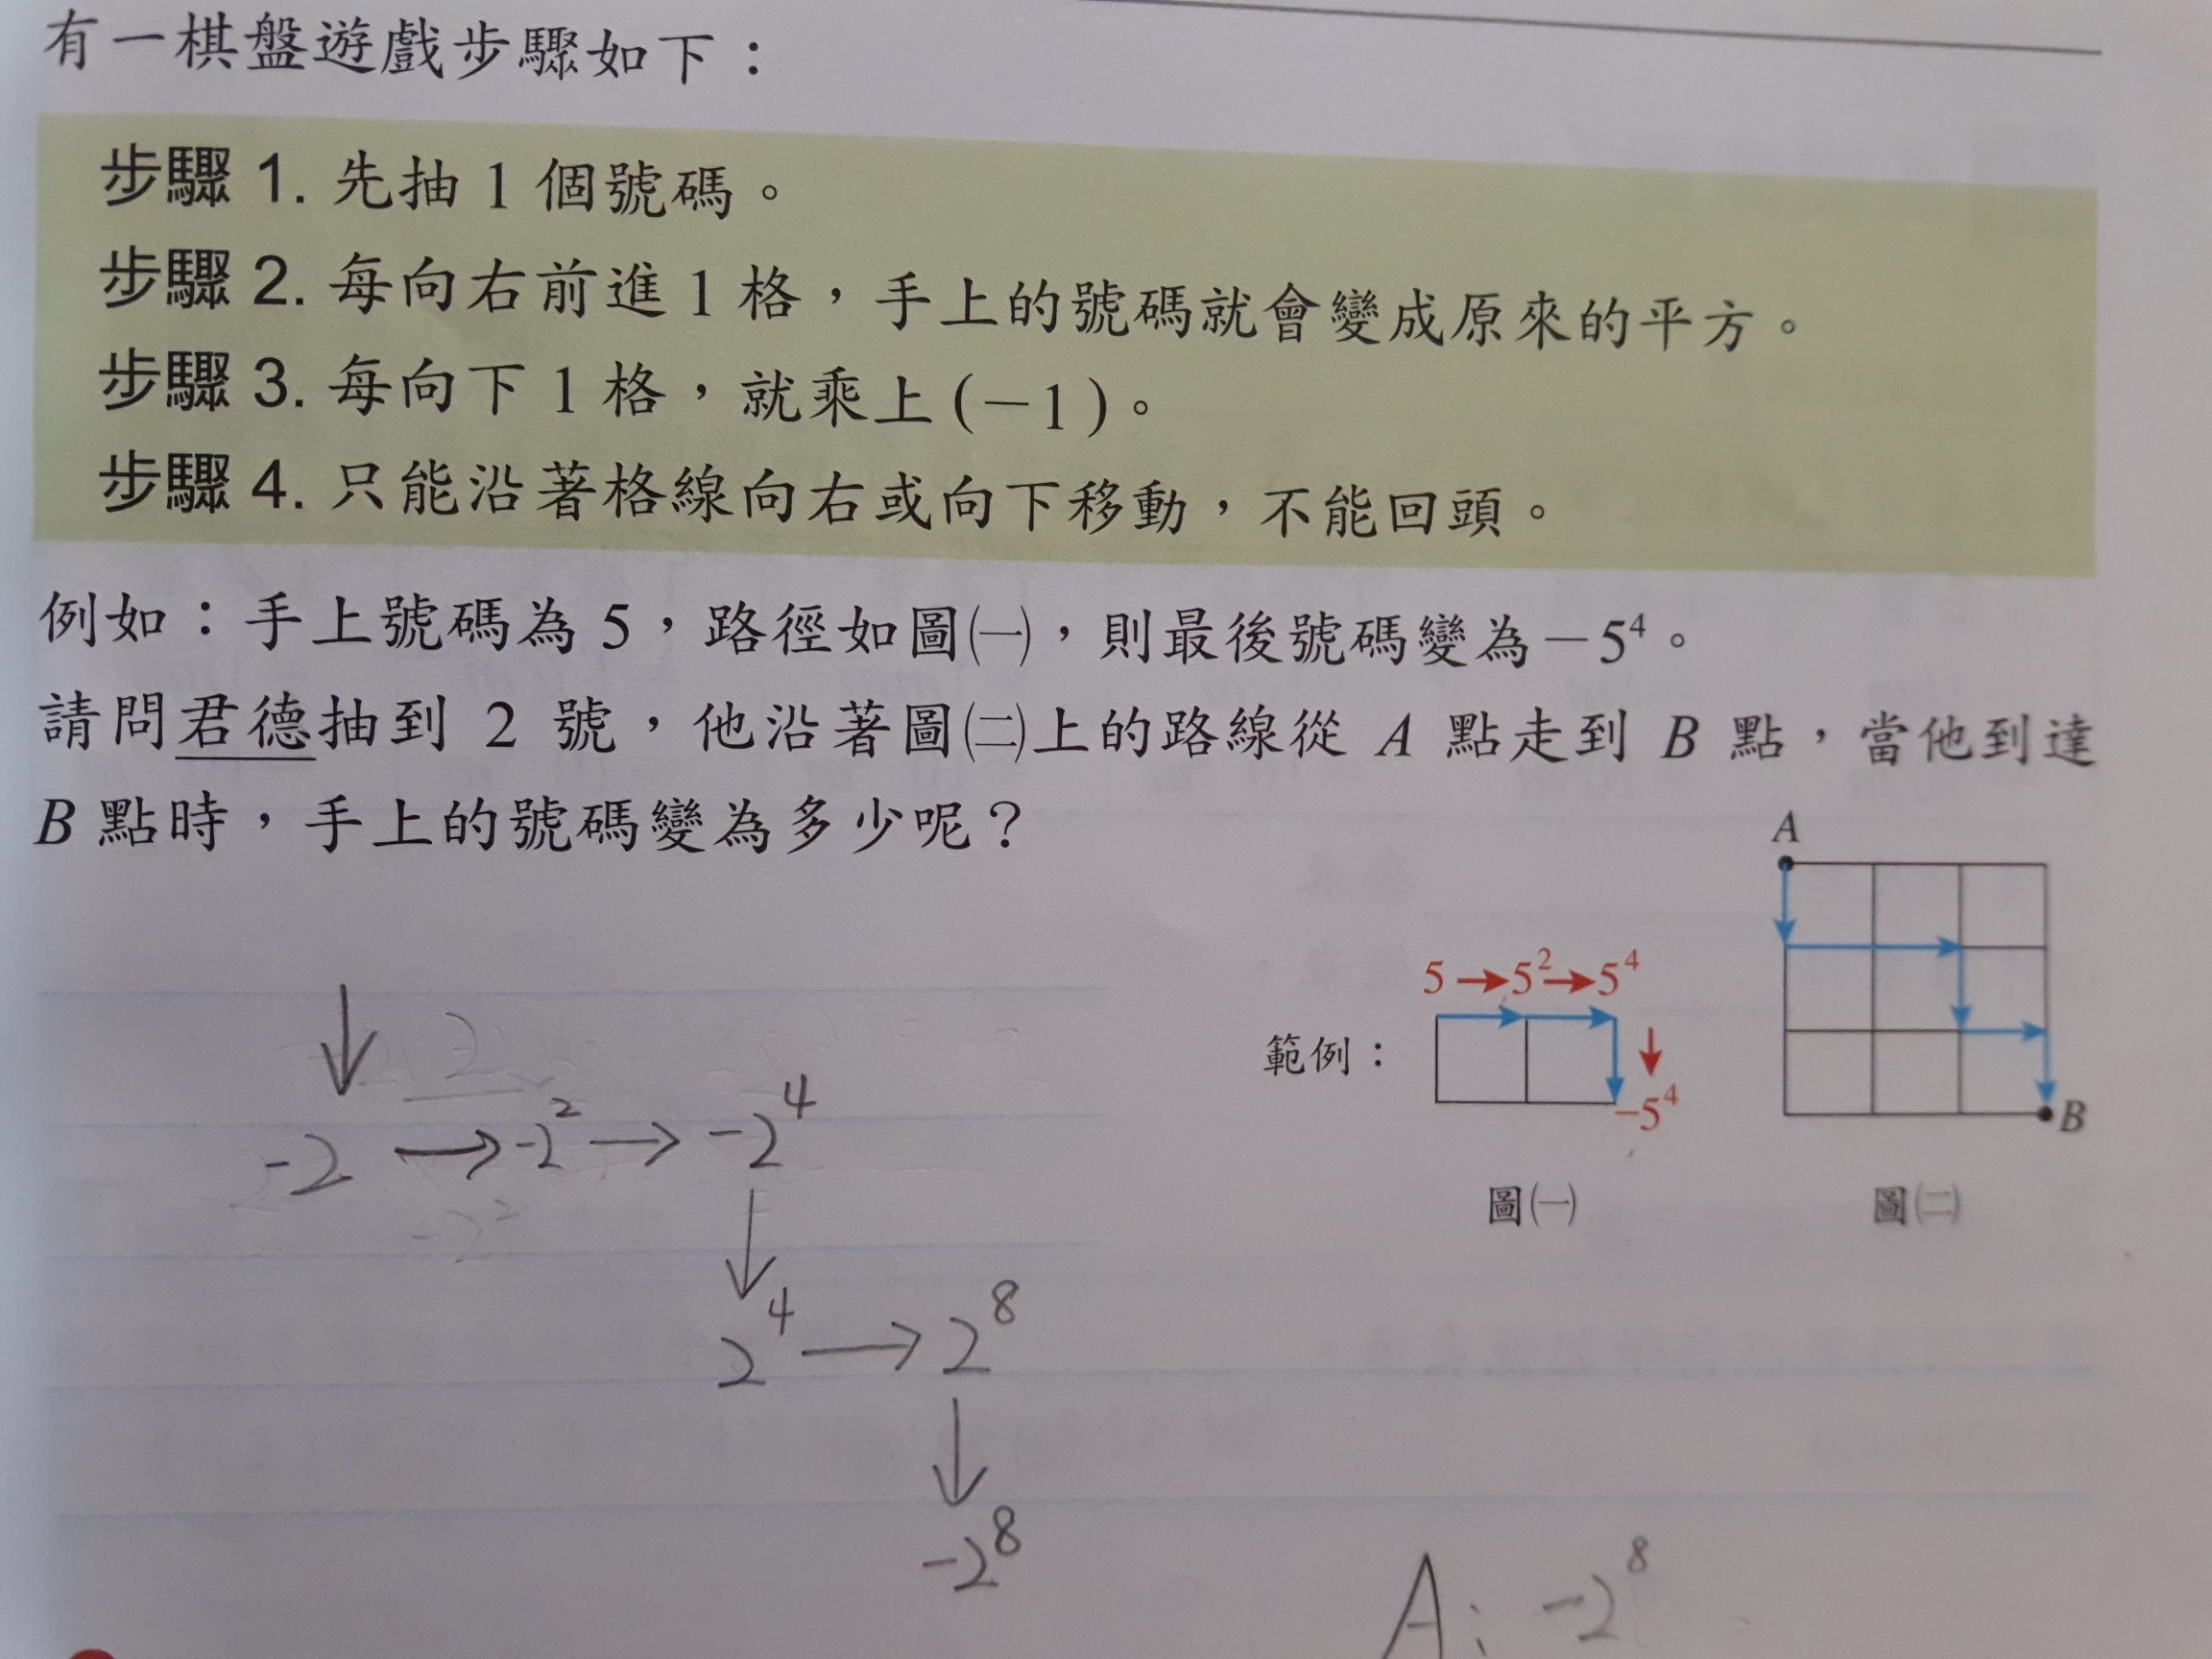 有一棋盤遊戲步驟如下：
步驟 1. 先抽 1 個號碼。
步驟 2. 每向右前進 1 格，手上的號碼就會變成原來的平方。
步驟 3. 每向下 1 格，就乘上 (−1)。
步驟 4. 只能沿著格線向右或向下移動，不能回頭。
例如：手上號碼為 5，路徑如圖㈠，則最後號碼變為 −5⁴。
請問君德抽到 2 號，他沿著圖㈡上的路線從 A 點走到 B 點，當他到達
B 點時，手上的號碼變為多少呢？
A
5→5²→5⁴
範例：
−5⁴
B
圖㈠
圖㈡
↓
-2 → -2² → -2⁴
↓
2⁴ → 2⁸
↓
-2⁸
A: -2⁸